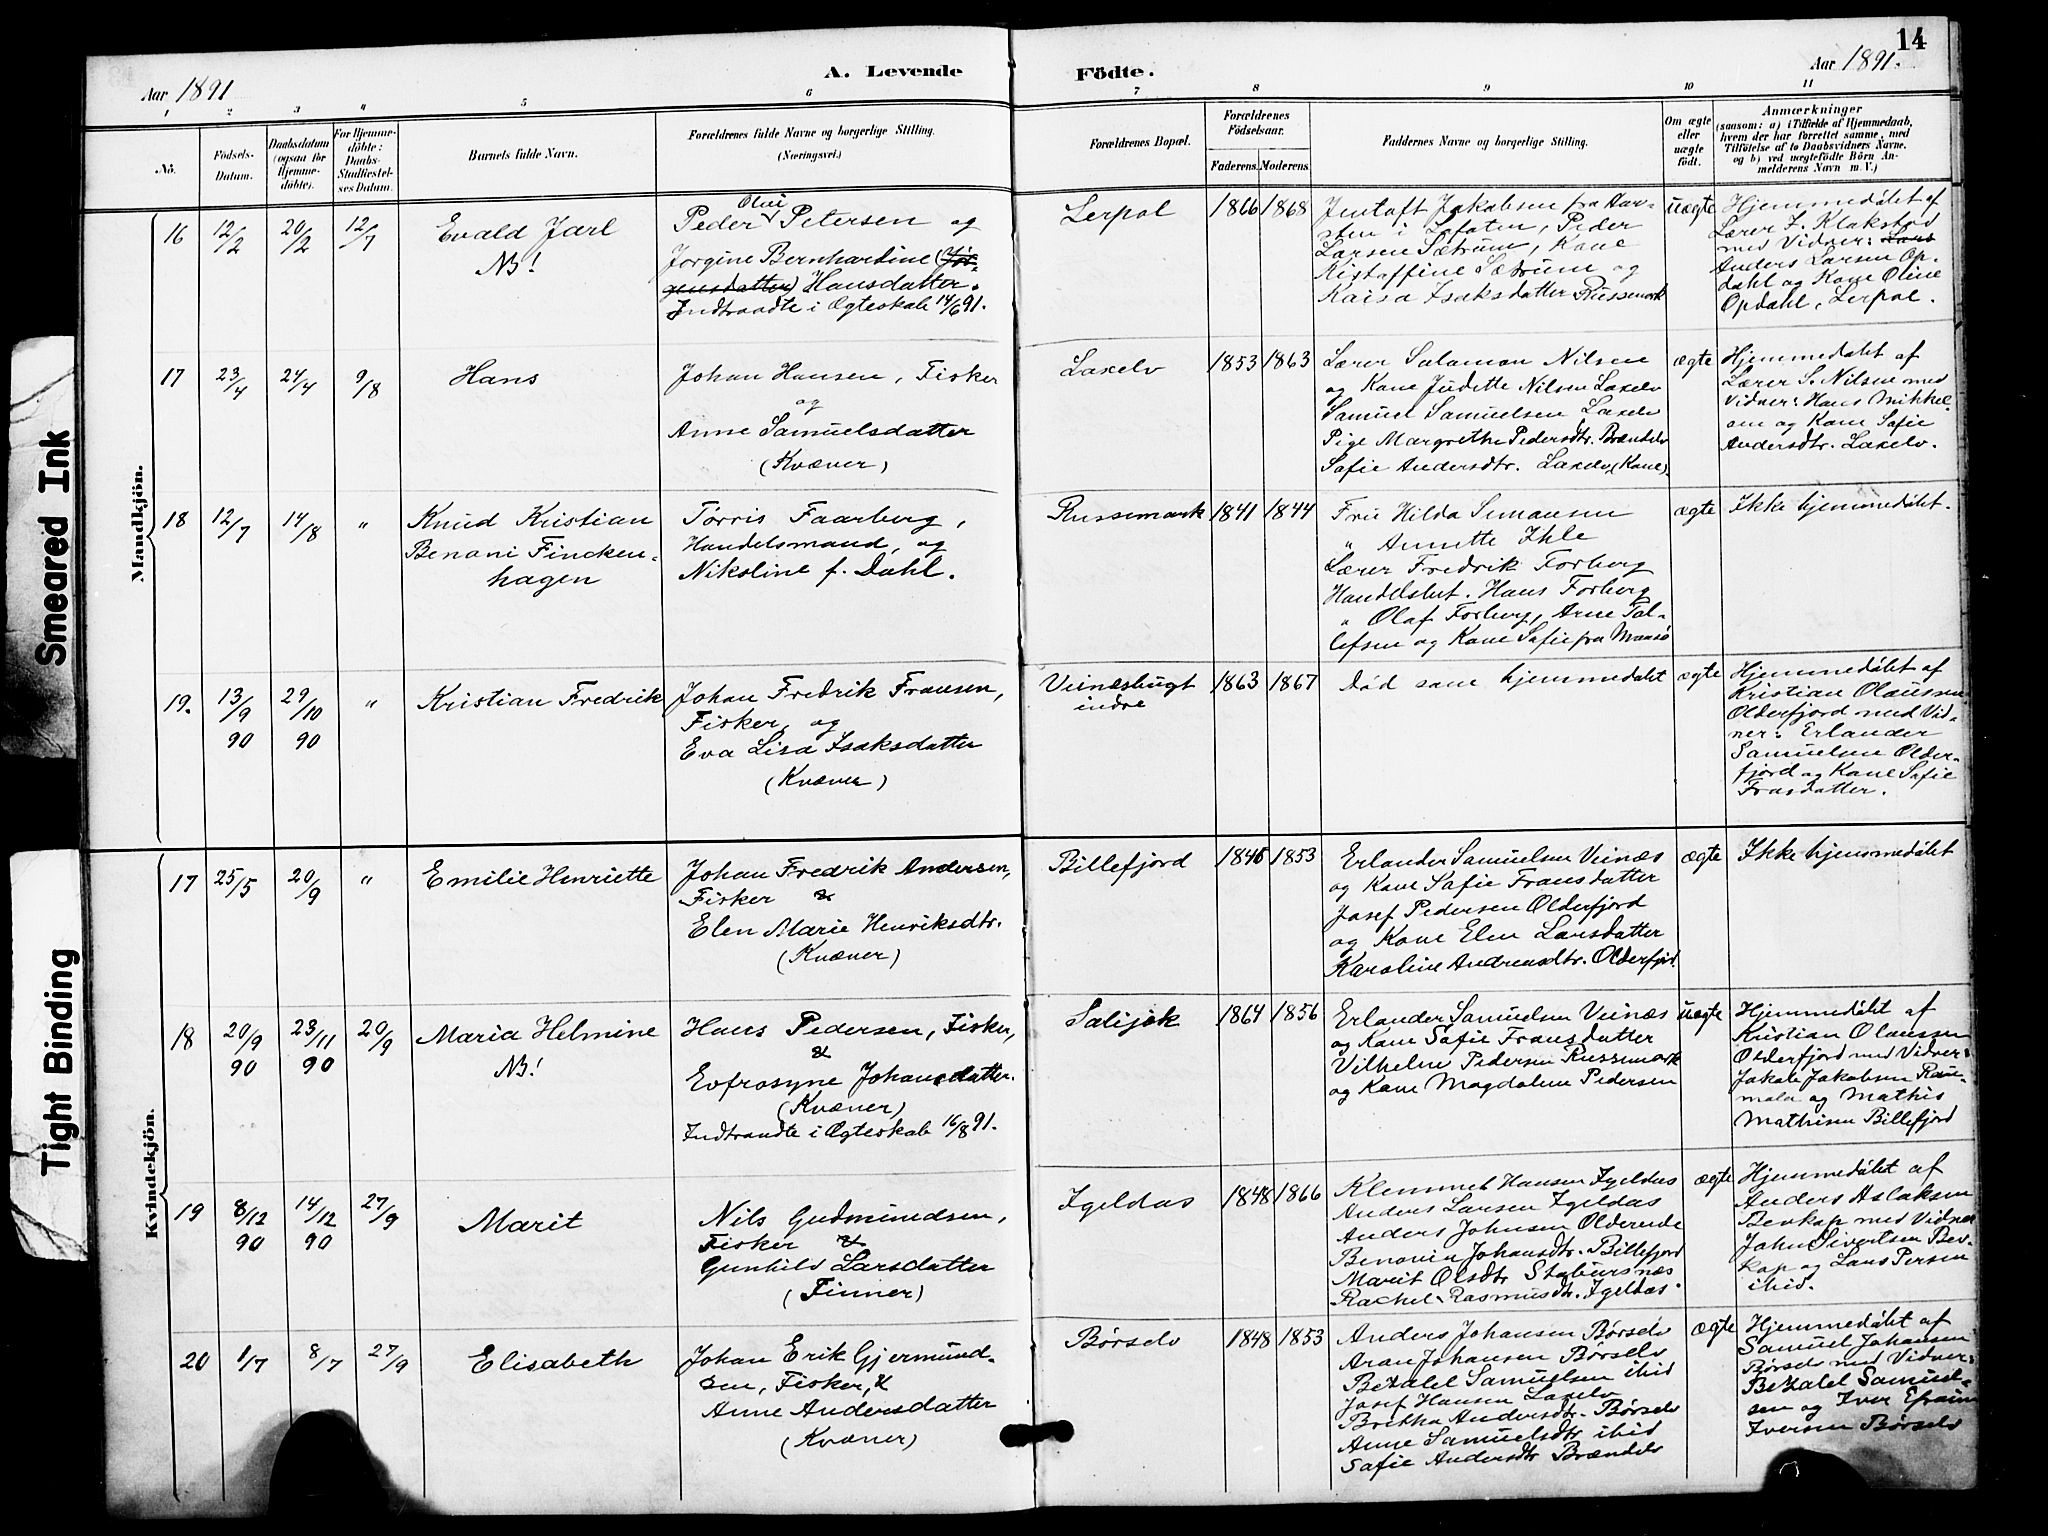 14
Aar 1891
A. Levende Födte.
Aar 1891.
1 2 3 4 5 6 7 8 9 10 11
No.
Födsels-
Datum.
Daabsdatum
(ogsaa for
Hjemme-
döbte).
For Hjemme-
döbte:
Daabs-
Stadfæstel-
ses Datum.
Barnets fulde Navn.
Forældrenes fulde Navne og borgerlige Stilling.
(Næringsvei.)
Forældrenes Bopæl.
Forældrenes
Födselsaar.
Faderens. Moderens.
Faddernes Navne og borgerlige Stilling.
Om ægte
eller
uægte
födt.
Anmærkninger
(saasom: a) i Tilfælde af Hjemmedaab,
hvem der har forrettet samme, med
Tilföielse af to Daabsvidners Navne,
og b) ved uægtefödte Börn An-
melderens Navn m.V.)
Mandkjön.
16
12/2
20/2
12/7
Evald Jarl
NB!
Olui
Peder Petersen og
Jorgine Bernhardine (Jör-
gensdatter) Hansdatter.
Indtraadte i Ægteskab 14/6 91.
Lerpol
1866
1868
Jakobsen fra
i Lofoten, Peder
Larsen Sætrum, Kone
Kistaffine Sætrum og
Kaisa Isaksdatter Russemark
uægte
Hjemmedøbt af
Lærer J. Klakstad
med Vidner: Lars
Anders Larsen Op-
dahl og Kone Oline
Opdahl, Lerpol.
17
23/4
24/4
9/18
Hans
Johan Hansen, Fisker
og
Anne Samuelsdatter
(Kvæner)
Laxelv
1853
1863
Lærer Salamon Nilsen
og Kone Judette Nilsen Laxelv
Samuel Samuelsen Laxelv
Pige Margrethe Pedersdtr. Brændelv
Safie Andersdtr. Laxelv (Kone)
ægte
Hjemmedøbt af
Lærer S. Nilsen med
Vidner: Hans Mikkel-
sen og Kone Safie
Andersdtr. Laxelv.
18
12/7
14/8
"
Knud Kristian
Benoni Fincken-
hagen
Tørris Faarberg,
Handelsmand, og
Nikoline f. Dahl.
Russemark
1841
1844
Fru Hilda Simonsen
" Annette Ihle
Lærer Fredrik Forberg
Handelsbet. Hans Forberg
" Olaf Forberg, Arne Tol-
lefsen og Kone Safie fra Maasø
ægte
Ikke hjemmedøbt.
19.
13/9
90
29/10
90
"
Kristian Fredrik
Johan Fredrik Fransen,
Fisker, og
Eva Lisa Isaksdatter
(Kvæner)
Veinæsbugt
indre
1863
1867
Død som hjemmedøbt
ægte
Hjemmedøbt af
Kristian Olaussen
Olderfjord med Vid-
ner: Erlander
Samuelsen Older-
fjord og Kone Safie
Fransdatter.
Kvindekjön.
17
25/5
20/9
"
Emilie Henriette
Johan Fredrik Andersen,
Fisker &
Elen Marie Henriksdtr.
(Kvæner)
Billefjord
1846
1853
Erlander Samuelsen Veinæs
og Kone Safie Fransdatter
Josef Pedersen Olderfjord
og Kone Elen Larsdatter
Karoline Andreasdtr. Olderfjord.
ægte
Ikke hjemmedøbt
18
20/9
90
23/11
90
20/9
Maria Helmine
NB!
Hans Pedersen, Fisker,
&
Evfrosyne Johansdatter.
(Kvæner)
Indtraadte i Ægteskab 16/8 91.
Salijok
1864
1856
Erlander Samuelsen Veinæs
og Kone Safie Fransdatter
Vilhelm Pedersen Russemark
og Kone Magdalena Pedersen
uægte
Hjemmedøbt af
Kristian Olaussen
Olderfjord med Vidner:
Jakob Jakobsen
og Mathis
Mathisen Billefjord
19
8/12
90
14/12
90
27/9
Marit
Nils Gudmundsen,
Fisker &
Gunhild Larsdatter
(Finner)
Igeldas
1848
1866
Klemmet Hansen Igeldas
Anders Larsen Igeldas
Anders Johnsen Oldereide
Benovia Johansdtr. Billefjord
Marit Olsdtr Stabursnæs
Rachel Rasmusdtr. Igeldas.
ægte
Hjemmedøbt af
Anders Aslaksen
Bevkop med Vidner
John Sivertsen Bev-
kop og Lars Persen
ibid.
20
1/7
8/7
27/9
Elisabeth
Johan Erik Gjermund-
sen, Fisker, &
Anne Andersdatter
(Kvæner)
Børselv
1848
1853
Anders Johansen Børselv
Aron Johansen Børselv
Bezalel Samuelsen ibid
Josef Hansen Laxelv
Britha Andersdtr. Børselv
Anne Samuelsdtr ibid
Safie Andersdtr Brændelv
ægte
Hjemmedøbt af
Samuel Johansen
Børselv med Vidner:
Bezalel Samuel-
sen og Iver Efraim
Iversen Børselv
Smeared Ink
Tight Binding